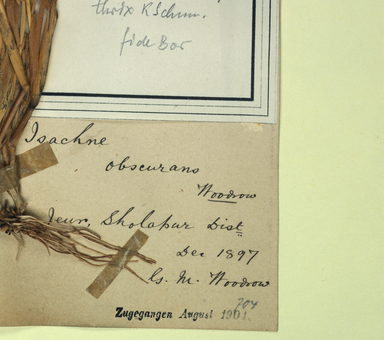 thrix K Schum.
fide Bor
Isachne
obscurans
Woodrow
Jeur, Sholapur Dist
Dec 1897
G. M. Woodrow
704
Zugegangen August 1901.